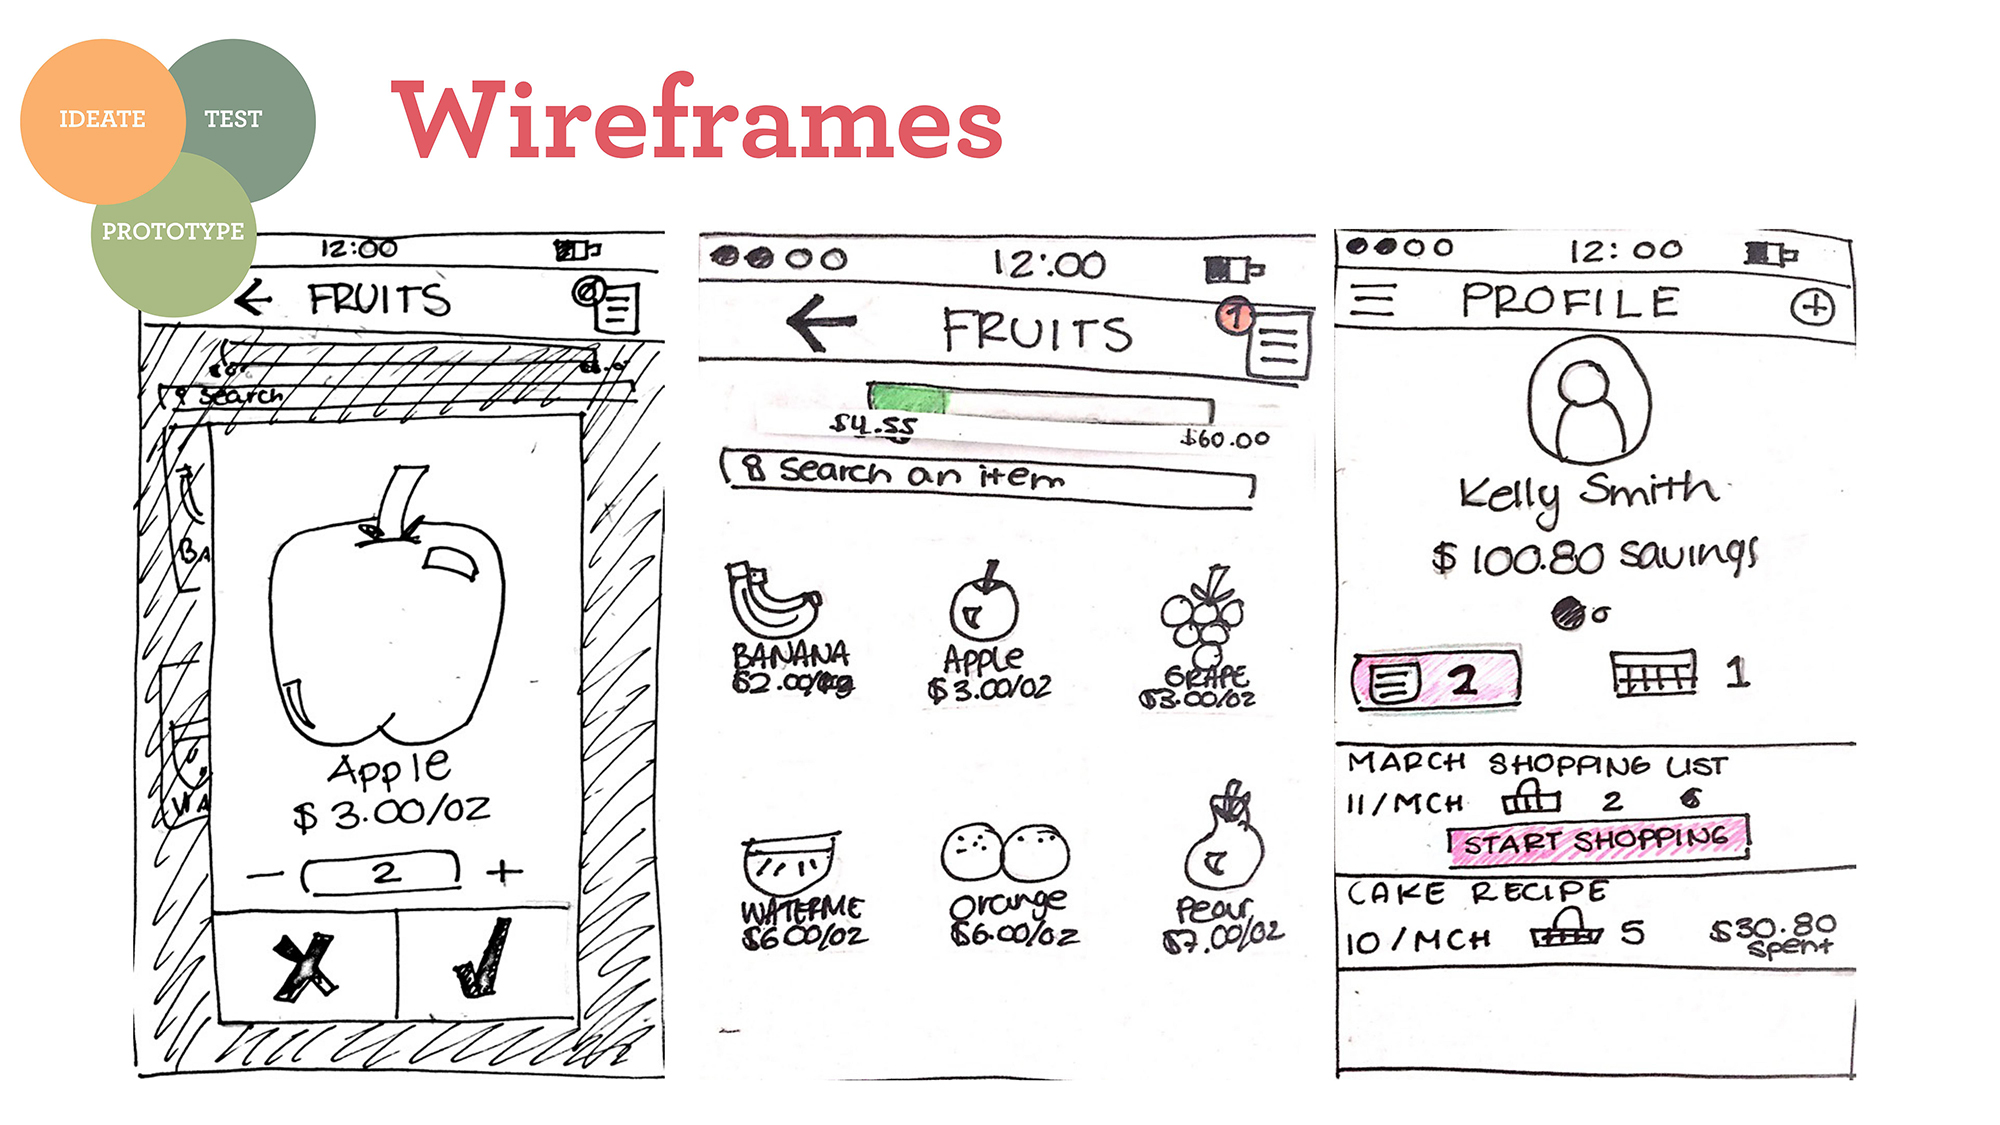 IDEATE
TEST
PROTOTYPE
Wireframes
12:00
FRUITS
Search
BA
WA
Apple
$3.00/oz
− 2 +
12:00
FRUITS
1
$4.55
$60.00
Search an item
BANANA
Apple
$3.00/oz
GRAPE
$3.00/oz
WATERME
$6.00/oz
Orange
$6.00/oz
Pear
$7.00/oz
12:00
PROFILE
Kelly Smith
$100.80 savings
2
1
MARCH SHOPPING LIST
11/MCH 2
START SHOPPING
CAKE RECIPE
10/MCH 5 $30.80
spent